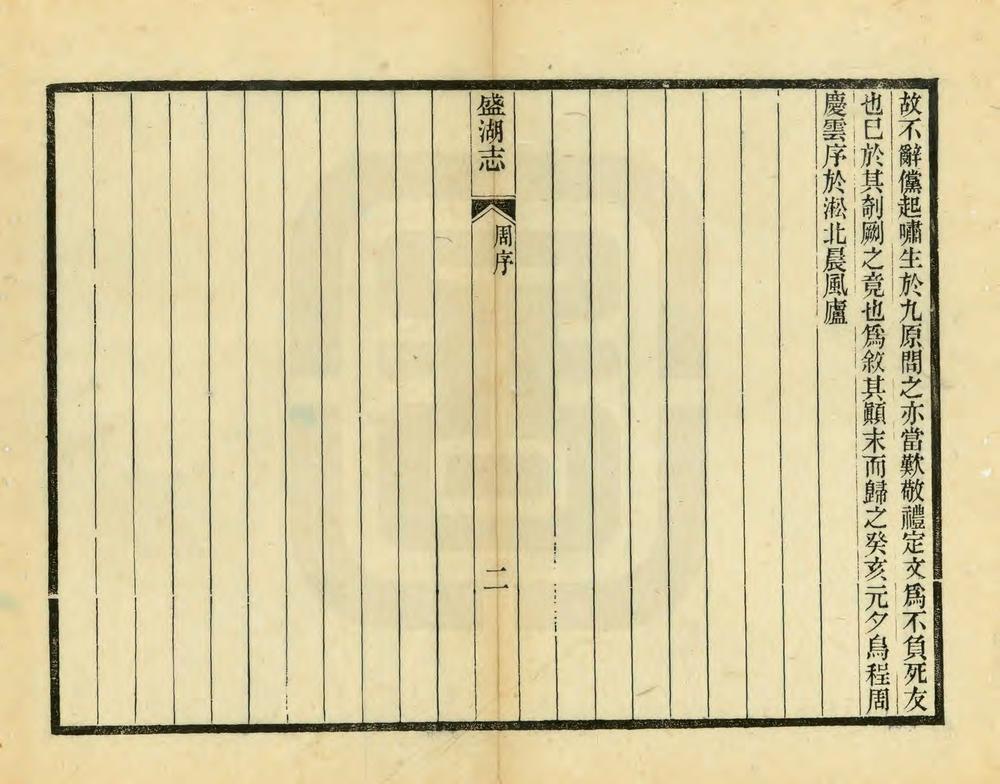 故不辭儻起嘯生於九原問之亦當歎敬禮定文爲不負死友
也已於其剞劂之竟也爲敘其顚末而歸之癸亥元夕烏程周
慶雲序於淞北晨風廬
盛湖志
周序
二